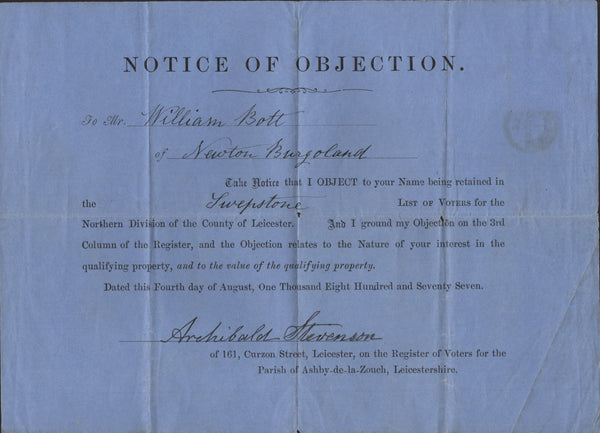 NOTICE OF OBJECTION.
To Mr. William Bott
of Newton Burgoland
Take Notice that I OBJECT to your Name being retained in
the Swepstone LIST OF VOTERS for the
Northern Division of the County of Leicester. And I ground my Objection on the 3rd
Column of the Register, and the Objection relates to the Nature of your interest in the
qualifying property, and to the value of the qualifying property.
Dated this Fourth day of August, One Thousand Eight Hundred and Seventy Seven.
Archibald Stevenson
of 161, Curzon Street, Leicester, on the Register of Voters for the
Parish of Ashby-de-la-Zouch, Leicestershire.